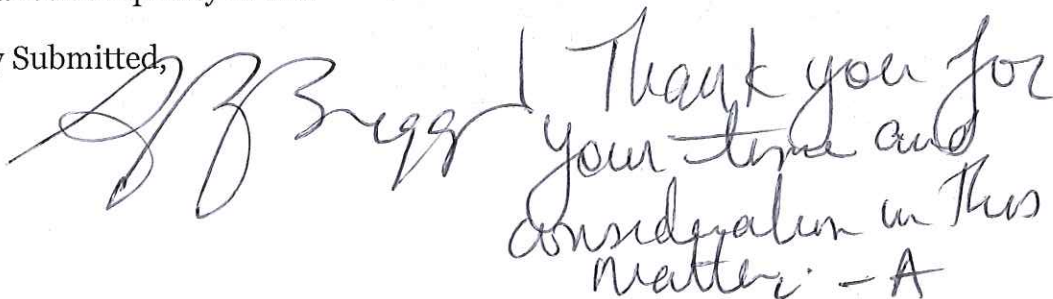 Submitted,
Briggs
Thank you for
your time and
consideration in this
matter. - A